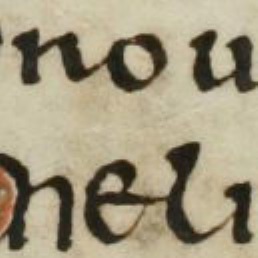 nou
heli